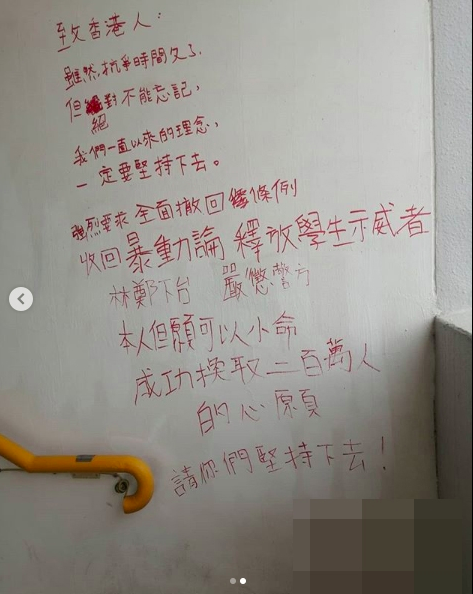 致香港人:
雖然,抗爭時間久了,
但絕對不能忘記,
我們一直以來的理念,
一定要堅持下去。
強烈要求 全面撤回條例
收回暴動論 釋放學生示威者
林鄭下台 嚴懲警方
本人但願可以小命
成功換取二百萬人
的心願
請你們堅持下去!